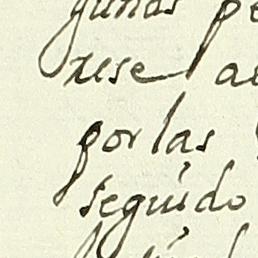 gunas pe
rese a
por las
seguido